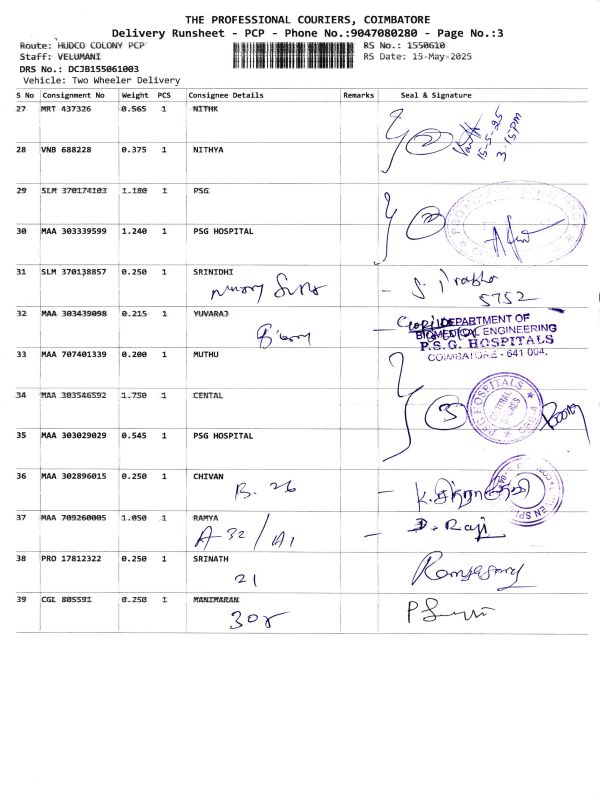 THE PROFESSIONAL COURIERS, COIMBATORE
Delivery Runsheet - PCP - Phone No.:9047080280 - Page No.:3
Route: HUDCO COLONY PCP RS No.: 1550610
Staff: VELUMANI RS Date: 15-May-2025
DRS No.: DCJB155061003
Vehicle: Two Wheeler Delivery
S No Consignment No Weight PCS Consignee Details Remarks Seal & Signature
27 MRT 437326 0.565 1 NITHK
15-5-25
3.15pm
28 VNB 688228 0.375 1 NITHYA
2
29 SLM 370174103 1.180 1 PSG
2
30 MAA 303339599 1.240 1 PSG HOSPITAL
31 SLM 370138857 0.250 1 SRINIDHI
5752
32 MAA 303439098 0.215 1 YUVARAJ
DEPARTMENT OF
BIOMEDICAL ENGINEERING
P.S.G. HOSPITALS
COIMBATORE - 641 004.
33 MAA 707401339 0.200 1 MUTHU
34 MAA 303546592 1.750 1 CENTAL
3
PSG HOSPITALS
35 MAA 303029029 0.545 1 PSG HOSPITAL
36 MAA 302896015 0.250 1 CHIVAN
B. 26
37 MAA 709260005 1.050 1 RAMYA
A-32/A1 D. Raji
38 PRO 17812322 0.250 1 SRINATH
21
39 CGL 805591 0.250 1 MANIMARAN